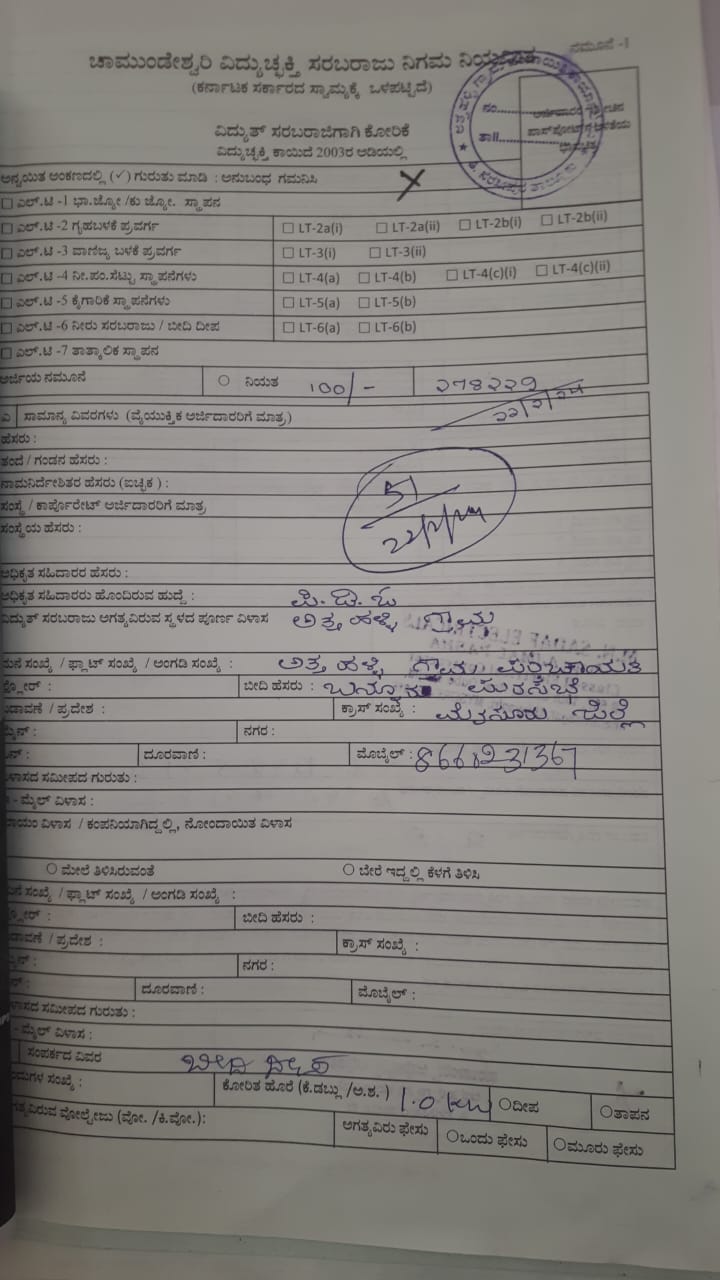 ನಮೂನೆ -1
ಚಾಮುಂಡೇಶ್ವರಿ ವಿದ್ಯುಚ್ಛಕ್ತಿ ಸರಬರಾಜು ನಿಗಮ
(ಕರ್ನಾಟಕ ಸರ್ಕಾರದ ಸ್ವಾಮ್ಯಕ್ಕೆ ಒಳಪಟ್ಟಿದೆ)
ವಿದ್ಯುತ್ ಸರಬರಾಜಿಗಾಗಿ ಕೋರಿಕೆ
ವಿದ್ಯುಚ್ಛಕ್ತಿ ಕಾಯಿದೆ 2003ರ ಅಡಿಯಲ್ಲಿ
ನಂ.
ತಾ||
ಅನ್ವಯಿತ ಅಂಕಣದಲ್ಲಿ (✓) ಗುರುತು ಮಾಡಿ : ಅನುಬಂಧ ಗಮನಿಸಿ
ಎಲ್.ಟಿ -1 ಭಾ.ಜ್ಯೋ /ಕು ಜ್ಯೋ. ಸ್ಥಾಪನ
ಎಲ್.ಟಿ -2 ಗೃಹಬಳಕೆ ಪ್ರವರ್ಗ LT-2a(i) LT-2a(ii) LT-2b(i) LT-2b(ii)
ಎಲ್.ಟಿ -3 ವಾಣಿಜ್ಯ ಬಳಕೆ ಪ್ರವರ್ಗ LT-3(i) LT-3(ii)
ಎಲ್.ಟಿ -4 ನೀ.ಪಂ.ಸೆಟ್ಟು ಸ್ಥಾಪನೆಗಳು LT-4(a) LT-4(b) LT-4(c)(i) LT-4(c)(ii)
ಎಲ್.ಟಿ -5 ಕೈಗಾರಿಕೆ ಸ್ಥಾಪನೆಗಳು LT-5(a) LT-5(b)
ಎಲ್.ಟಿ -6 ನೀರು ಸರಬರಾಜು / ಬೀದಿ ದೀಪ LT-6(a) LT-6(b)
ಎಲ್.ಟಿ -7 ತಾತ್ಕಾಲಿಕ ಸ್ಥಾಪನ
ಅರ್ಜಿಯ ನಮೂನೆ ನಿಯತ 100/-
ಎ ಸಾಮಾನ್ಯ ವಿವರಗಳು (ವೈಯುಕ್ತಿಕ ಅರ್ಜಿದಾರರಿಗೆ ಮಾತ್ರ)
ಹೆಸರು :
ತಂದೆ / ಗಂಡನ ಹೆಸರು :
ನಾಮನಿರ್ದೇಶಿತರ ಹೆಸರು (ಐಚ್ಛಿಕ ) :
ಸಂಸ್ಥೆ / ಕಾರ್ಪೊರೇಟ್ ಅರ್ಜಿದಾರರಿಗೆ ಮಾತ್ರ 51
ಸಂಸ್ಥೆಯ ಹೆಸರು :
ಅಧಿಕೃತ ಸಹಿದಾರರ ಹೆಸರು :
ಅಧಿಕೃತ ಸಹಿದಾರರು ಹೊಂದಿರುವ ಹುದ್ದೆ : ಪಿ.ಡಿ.ಓ
ವಿದ್ಯುತ್ ಸರಬರಾಜು ಅಗತ್ಯವಿರುವ ಸ್ಥಳದ ಪೂರ್ಣ ವಿಳಾಸ ಅತ್ತಹಳ್ಳಿ ಗ್ರಾಮ
ಮನೆ ಸಂಖ್ಯೆ / ಫ್ಲಾಟ್ ಸಂಖ್ಯೆ / ಅಂಗಡಿ ಸಂಖ್ಯೆ : ಅತ್ತಹಳ್ಳಿ ಗ್ರಾಮ ಪಂಚಾಯತಿ
ಬೀದಿ ಹೆಸರು : ಬನ್ನೂರು ಪುರಸಭೆ
ಬಡಾವಣೆ / ಪ್ರದೇಶ : ಕ್ರಾಸ್ ಸಂಖ್ಯೆ : ಮೈಸೂರು ಜಿಲ್ಲೆ
ನಗರ :
ದೂರವಾಣಿ : ಮೊಬೈಲ್ : 8660231367
ವಿಳಾಸದ ಸಮೀಪದ ಗುರುತು :
- ಮೈಲ್ ವಿಳಾಸ :
ವಿಳಾಸ / ಕಂಪನಿಯಾಗಿದ್ದಲ್ಲಿ, ನೋಂದಾಯಿತ ವಿಳಾಸ
ಮೇಲೆ ತಿಳಿಸಿರುವಂತೆ ಬೇರೆ ಇದ್ದಲ್ಲಿ ಕೆಳಗೆ ತಿಳಿಸಿ
ಮನೆ ಸಂಖ್ಯೆ / ಫ್ಲಾಟ್ ಸಂಖ್ಯೆ / ಅಂಗಡಿ ಸಂಖ್ಯೆ :
ಬೀದಿ ಹೆಸರು :
ಬಡಾವಣೆ / ಪ್ರದೇಶ : ಕ್ರಾಸ್ ಸಂಖ್ಯೆ :
ನಗರ :
ದೂರವಾಣಿ : ಮೊಬೈಲ್ :
ವಿಳಾಸದ ಸಮೀಪದ ಗುರುತು :
- ಮೈಲ್ ವಿಳಾಸ :
ಸಂಪರ್ಕದ ವಿವರ ಬೀದಿ ದೀಪ
ಸಂಖ್ಯೆ : ಕೋರಿತ ಹೊರೆ (ಕೆ.ಡಬ್ಲು /ಅ.ಶ. ) 1.0 KW ದೀಪ ತಾಪನ
ಅಗತ್ಯವಿರುವ ವೋಲ್ಟೇಜು (ವೋ. /ಕಿ.ವೋ.): ಅಗತ್ಯವಿರು ಫೇಸು ಒಂದು ಫೇಸು ಮೂರು ಫೇಸು